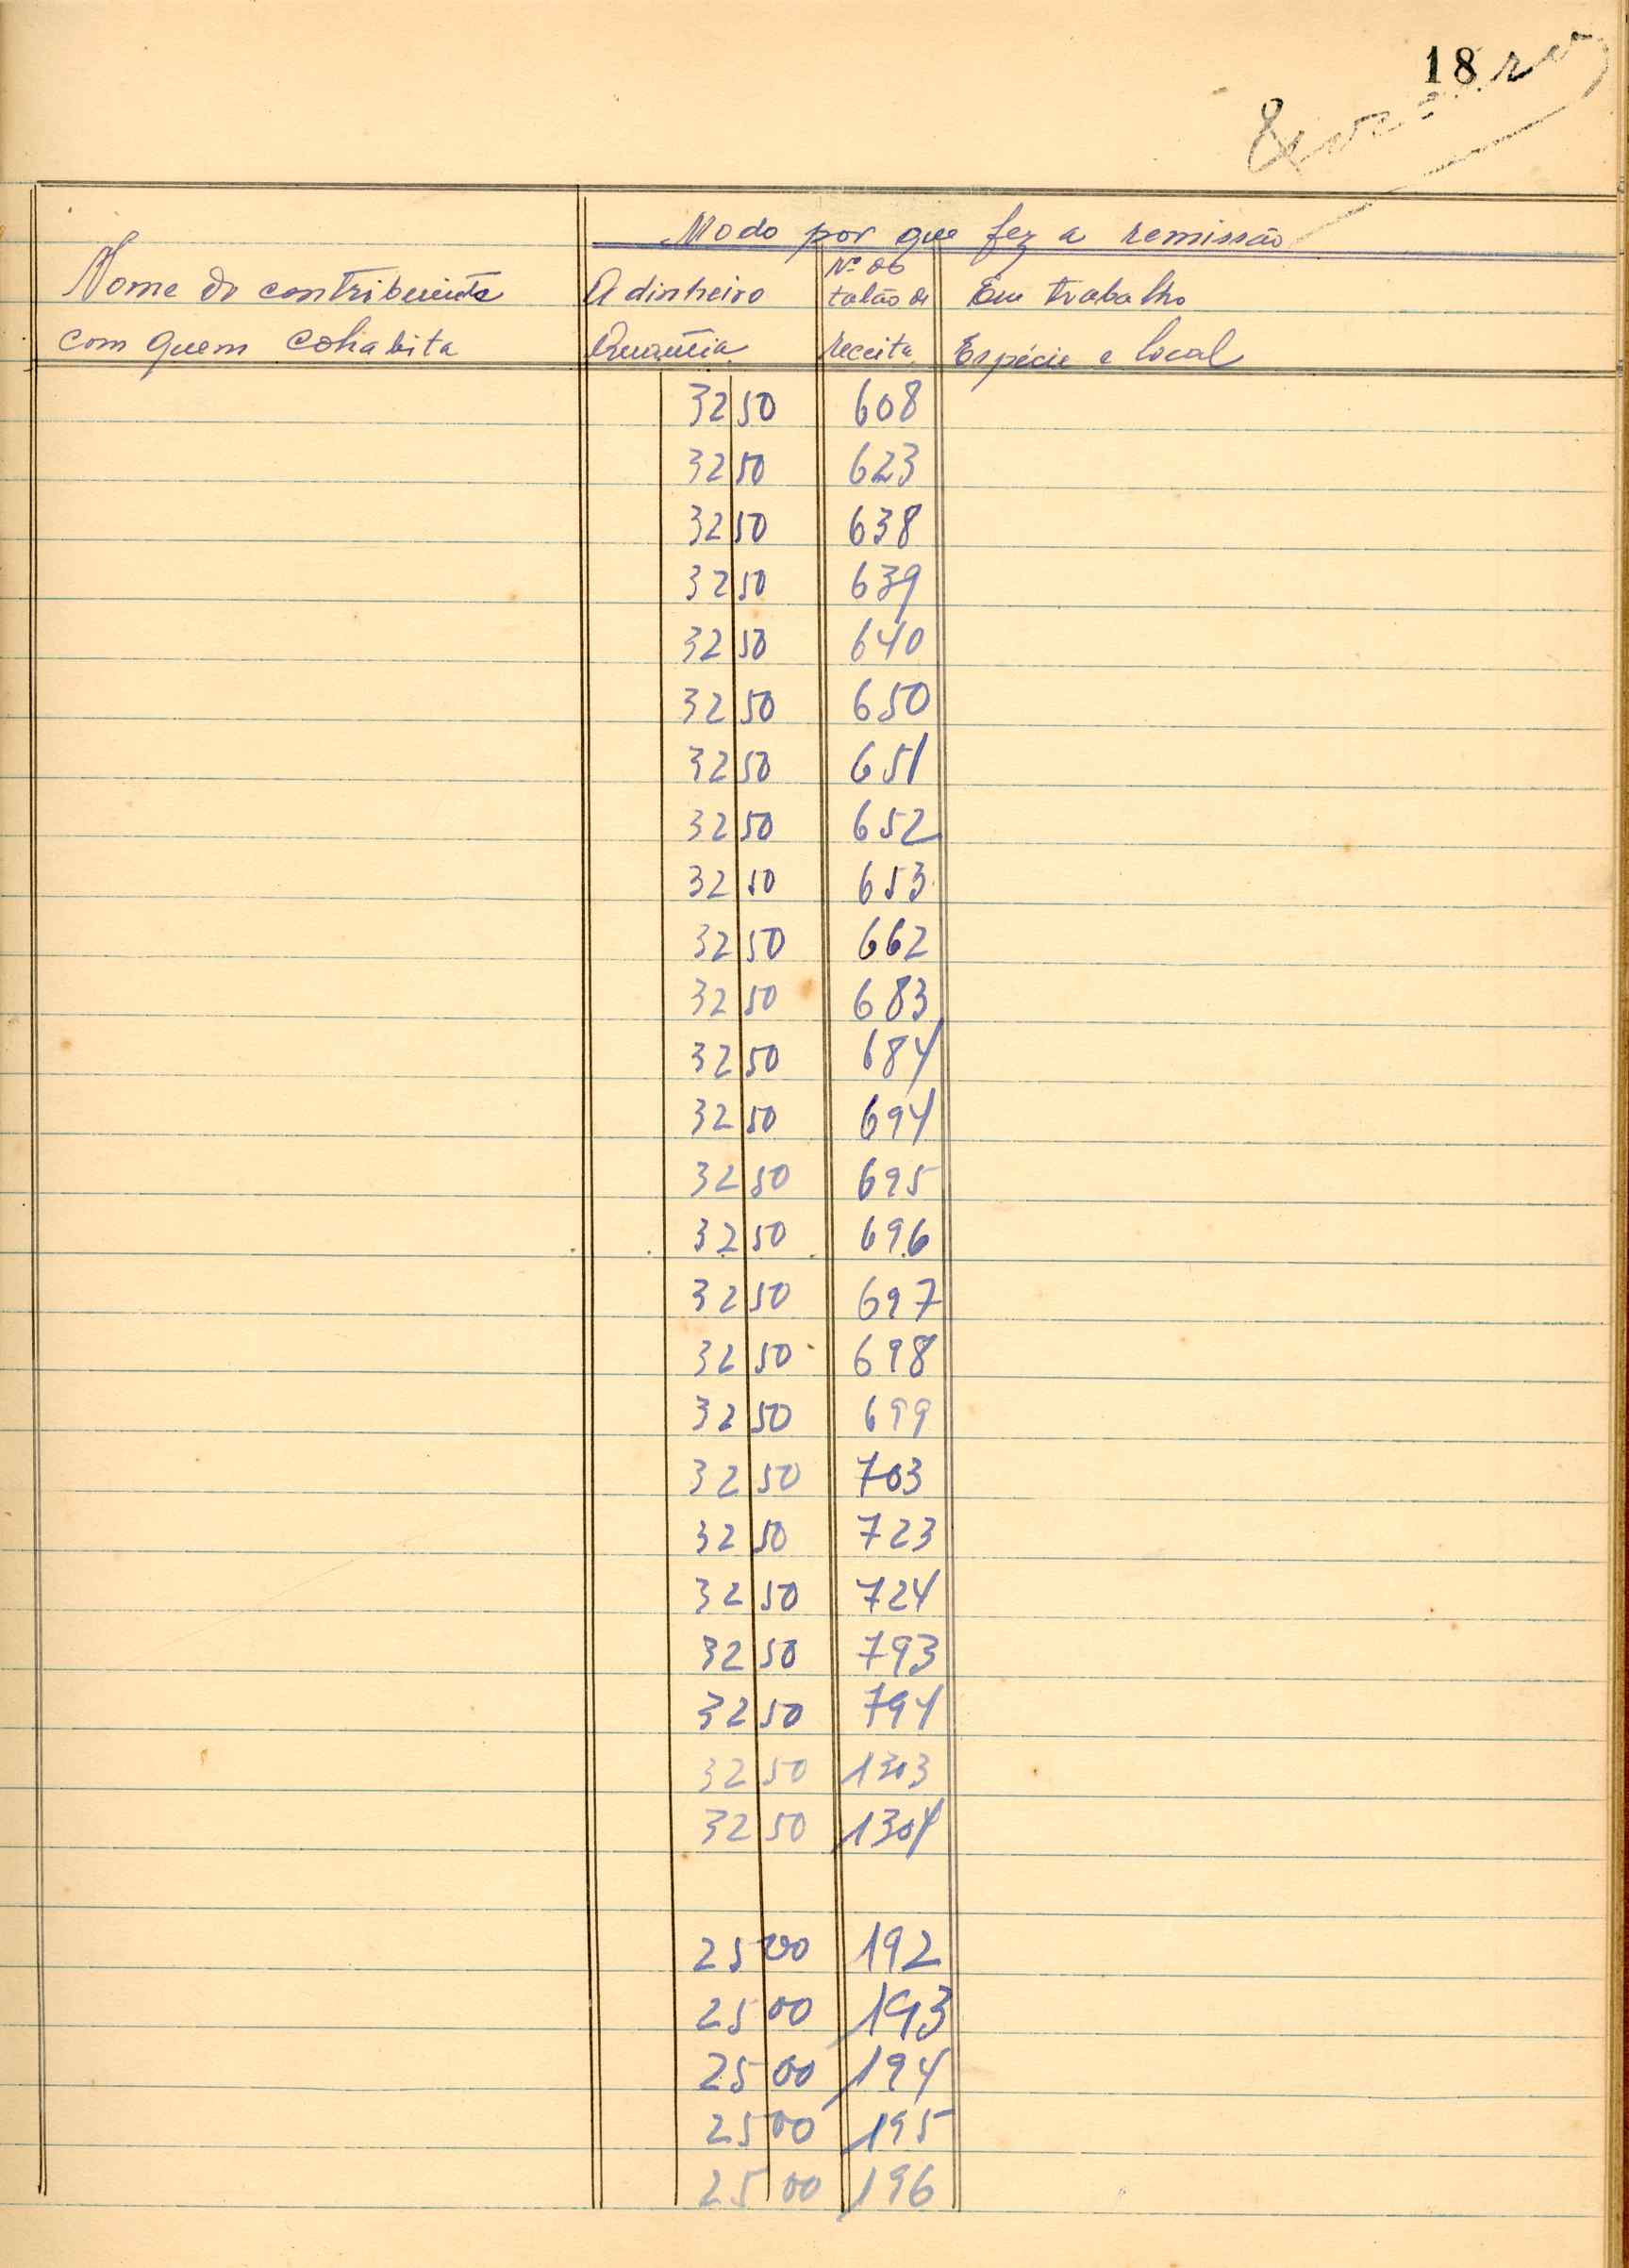 18
Modo por que fez a remissão
Nome do contribuinte A dinheiro Nº do talão de Em trabalho
com quem cohabita Quantia receita Espécie e local
32 50 608
32 50 623
32 50 638
32 50 639
32 50 640
32 50 650
32 50 651
32 50 652
32 50 653
32 50 662
32 50 683
32 50 684
32 50 694
32 50 695
32 50 696
32 50 697
32 50 698
32 50 699
32 50 703
32 50 723
32 50 724
32 50 793
32 50 794
32 50 1303
32 50 1304
25 00 192
25 00 193
25 00 194
25 00 195
25 00 196